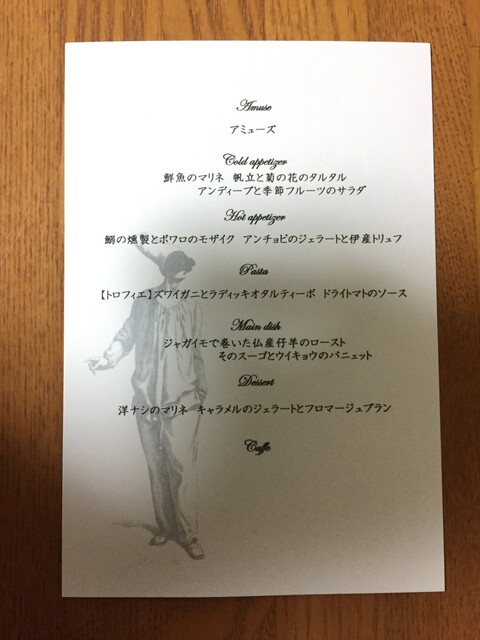 Amuse
アミューズ
Cold appetizer
鮮魚のマリネ 帆立と菊の花のタルタル
アンディーブと季節フルーツのサラダ
Hot appetizer
鰯の燻製とポワロのモザイク アンチョビのジェラートと伊産トリュフ
Pasta
【トロフィエ】ズワイガニとラディッキオタルティーボ ドライトマトのソース
Main dish
ジャガイモで巻いた仏産仔羊のロースト
そのスーゴとウイキョウのパニェット
Dessert
洋ナシのマリネ キャラメルのジェラートとフロマージュブラン
Caffe